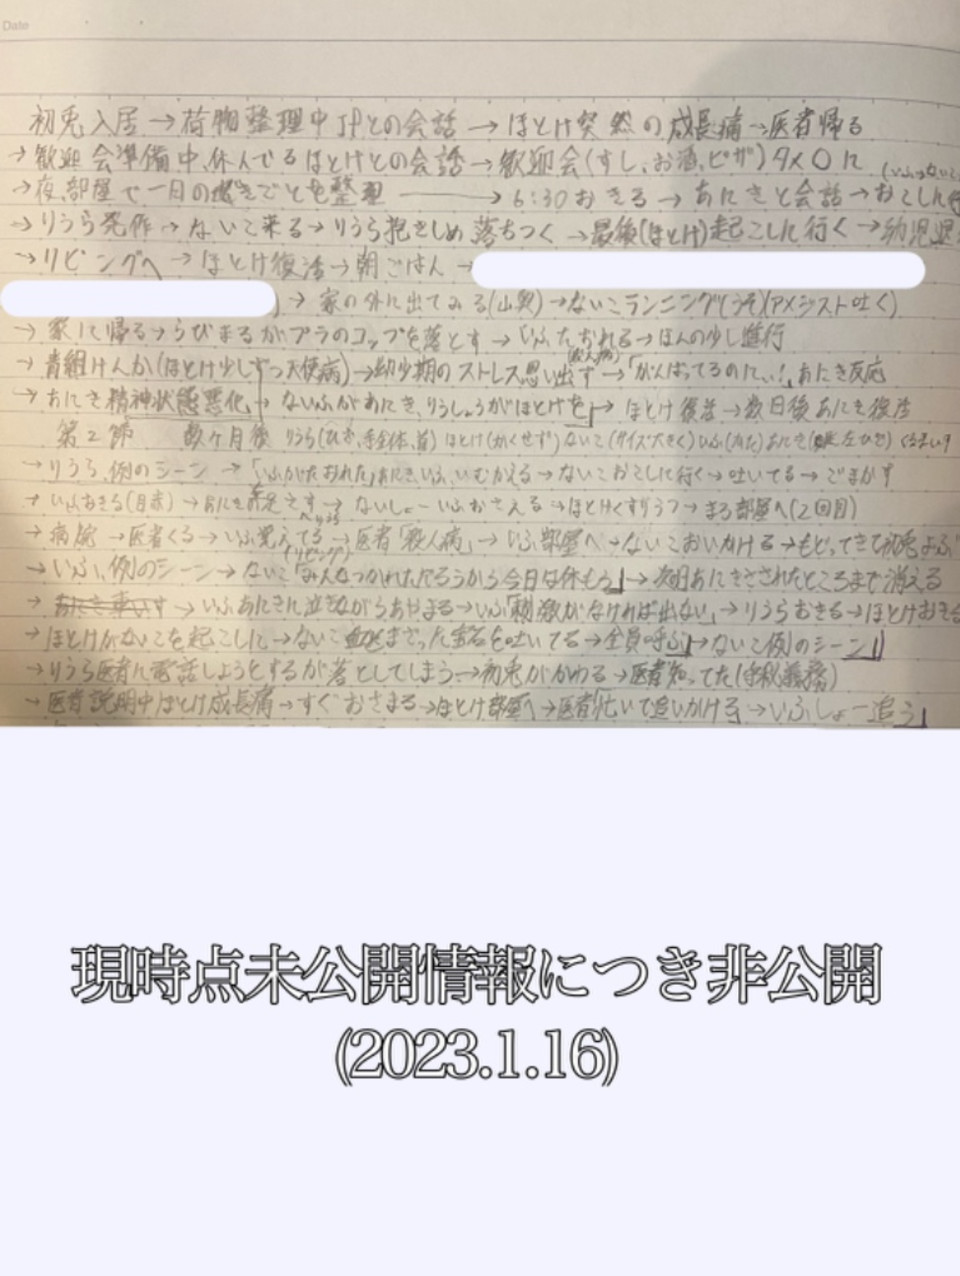 Date
初兎入居→荷物整理中JPとの会話→ほとけ突然の成長痛→医者帰る
→歓迎会準備中、休んでるほとけとの会話→歓迎会(すし、お酒、ピザ)
→夜、部屋で一月の できごとを整理→6:30おきる→あにきと会話→おこした
→りうら発作→ないこ来る→りうら抱きしめ落ちつく→最後(ほとけ)起こしに行く→幼児退
→リビングへ→ほとけ復活→朝ごはん→
→家の外に出てみる(山奥)→ないこランニング(うそ)(アメジスト吐く)
→家に帰る→うびまるがプラのコップを落とす→いふたおれる→ほんの少し進行
→青組けんか(ほとけ少しずつ天使病)→幼少期のストレス思い出す→「がんばってるのに…!」あにき反応
→あにき精神状態悪化→ないふがあにき、りうしょうがほとけを」→ほとけ復活→数日後あにき復活
第2節 数ヶ月後 りうら(ひざ、手全体、首)ほとけ(かくせず)ないこ(サイズ大きく)いふ
→りうら、例のシーン→「ふがたおれた」あにき、いふ、いむかえる→ないこおこしに行く→吐いてる→ごまかす
→いふおきる(目赤)→あにき →ないしょーいふおさえる→ほとけくすりうつ→まろ部屋へ(2回目)
→病院→医者くる→いふ覚えてる→医者「殺人病」→いふ部屋へ→ないこおいかける→もどってきて初兎よぶ
→いふ、例のシーン→ないこ「みんなつかれただろうから今日は休もう」→次の日あにきさされたところまで消える
→いふあにきに泣きながらあやまる→いふ「刺激がなければ出ない」→りうらおきる→ほとけおきる
→ほとけがないこを起こしに→ないこ血 まざった宝石を吐いてる→全員呼ぶ」→ないこ例のシーン」
→りうら医者に電話しようとするが落としてしまう→初兎がかわる→医者知ってた(守秘義務)
→医者説明中ほとけ成長痛→すぐおさまる→ほとけ部屋へ→医者忙いで追いかける→いふしょー追う」
現時点未公開情報につき非公開
(2023.1.16)